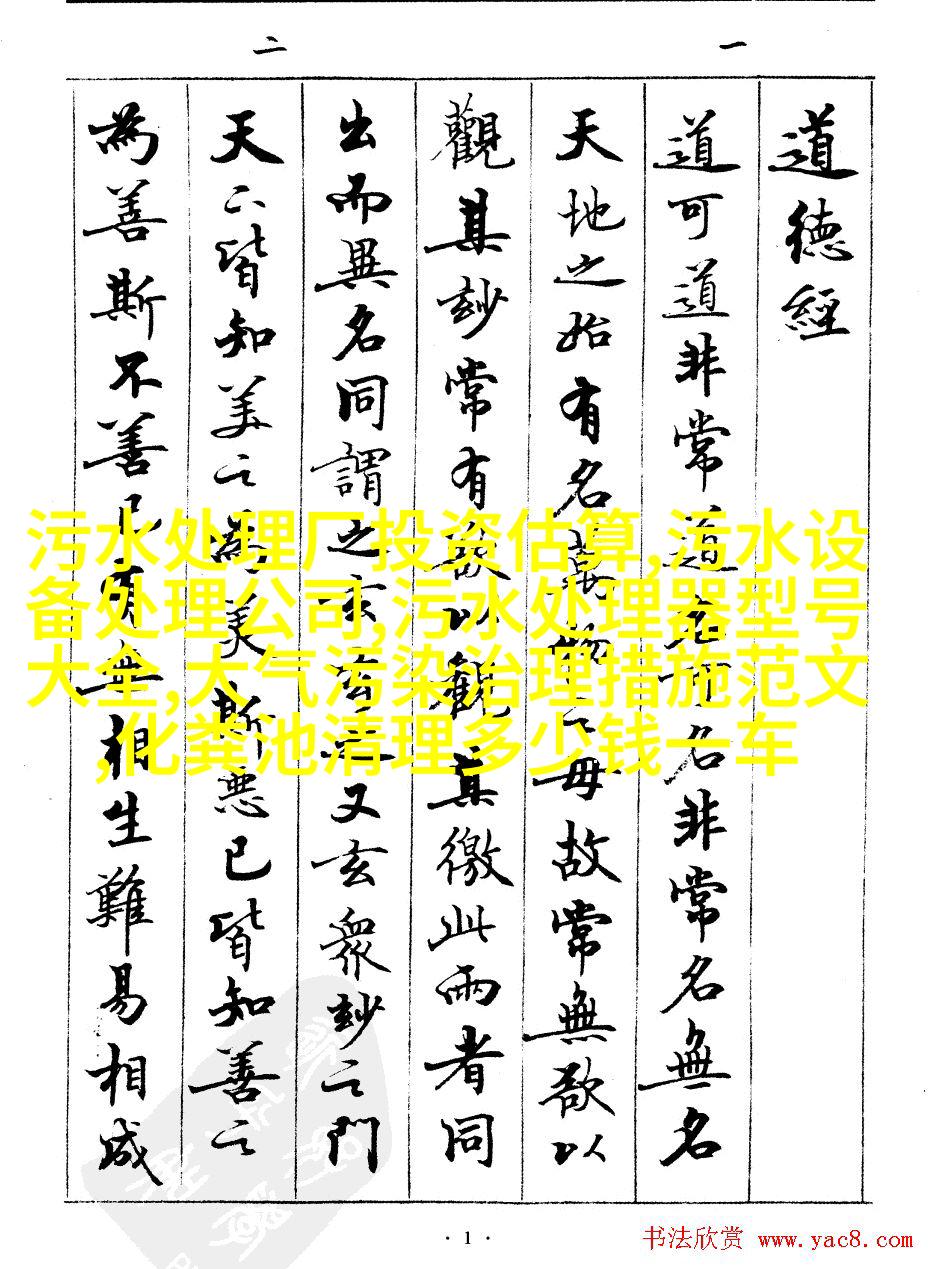 一
道德經
道可道非常道名可名非常名無名
天地之始有名萬物之母故常無欲以
觀其玅常有欲以觀其徼此兩者同
出而異名同謂之玄玄之又玄衆玅之門
二
天下皆知美之為美斯惡已皆知善之
為善斯不善已有無相生難易相成
污水处理厂投资估算,污水设
备处理公司,污水处理器型号
大全,大气污染治理措施范文
,化粪池清理多少钱一车
· 1 ·
书法欣赏 www.yac8.com